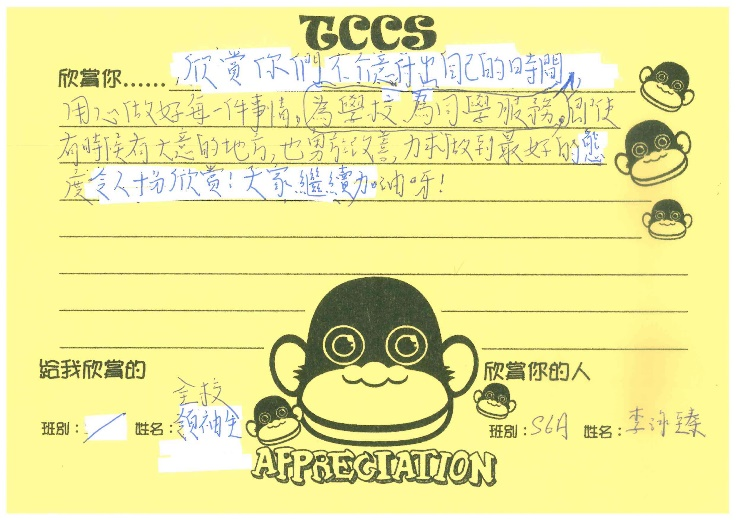 TCCS
欣賞你......欣賞你們不介意付出自己的時間,
用心做好每一件事情,為學校,為同學服務,即使
有時候有大意的地方,也勇於改善,力求做到最好的態
度令人十分欣賞!大家繼續加油呀!
給我欣賞的
欣賞你的人
全校
班別: 姓名:領袖生
班別:S6A 姓名:李泳臻
APPRECIATION